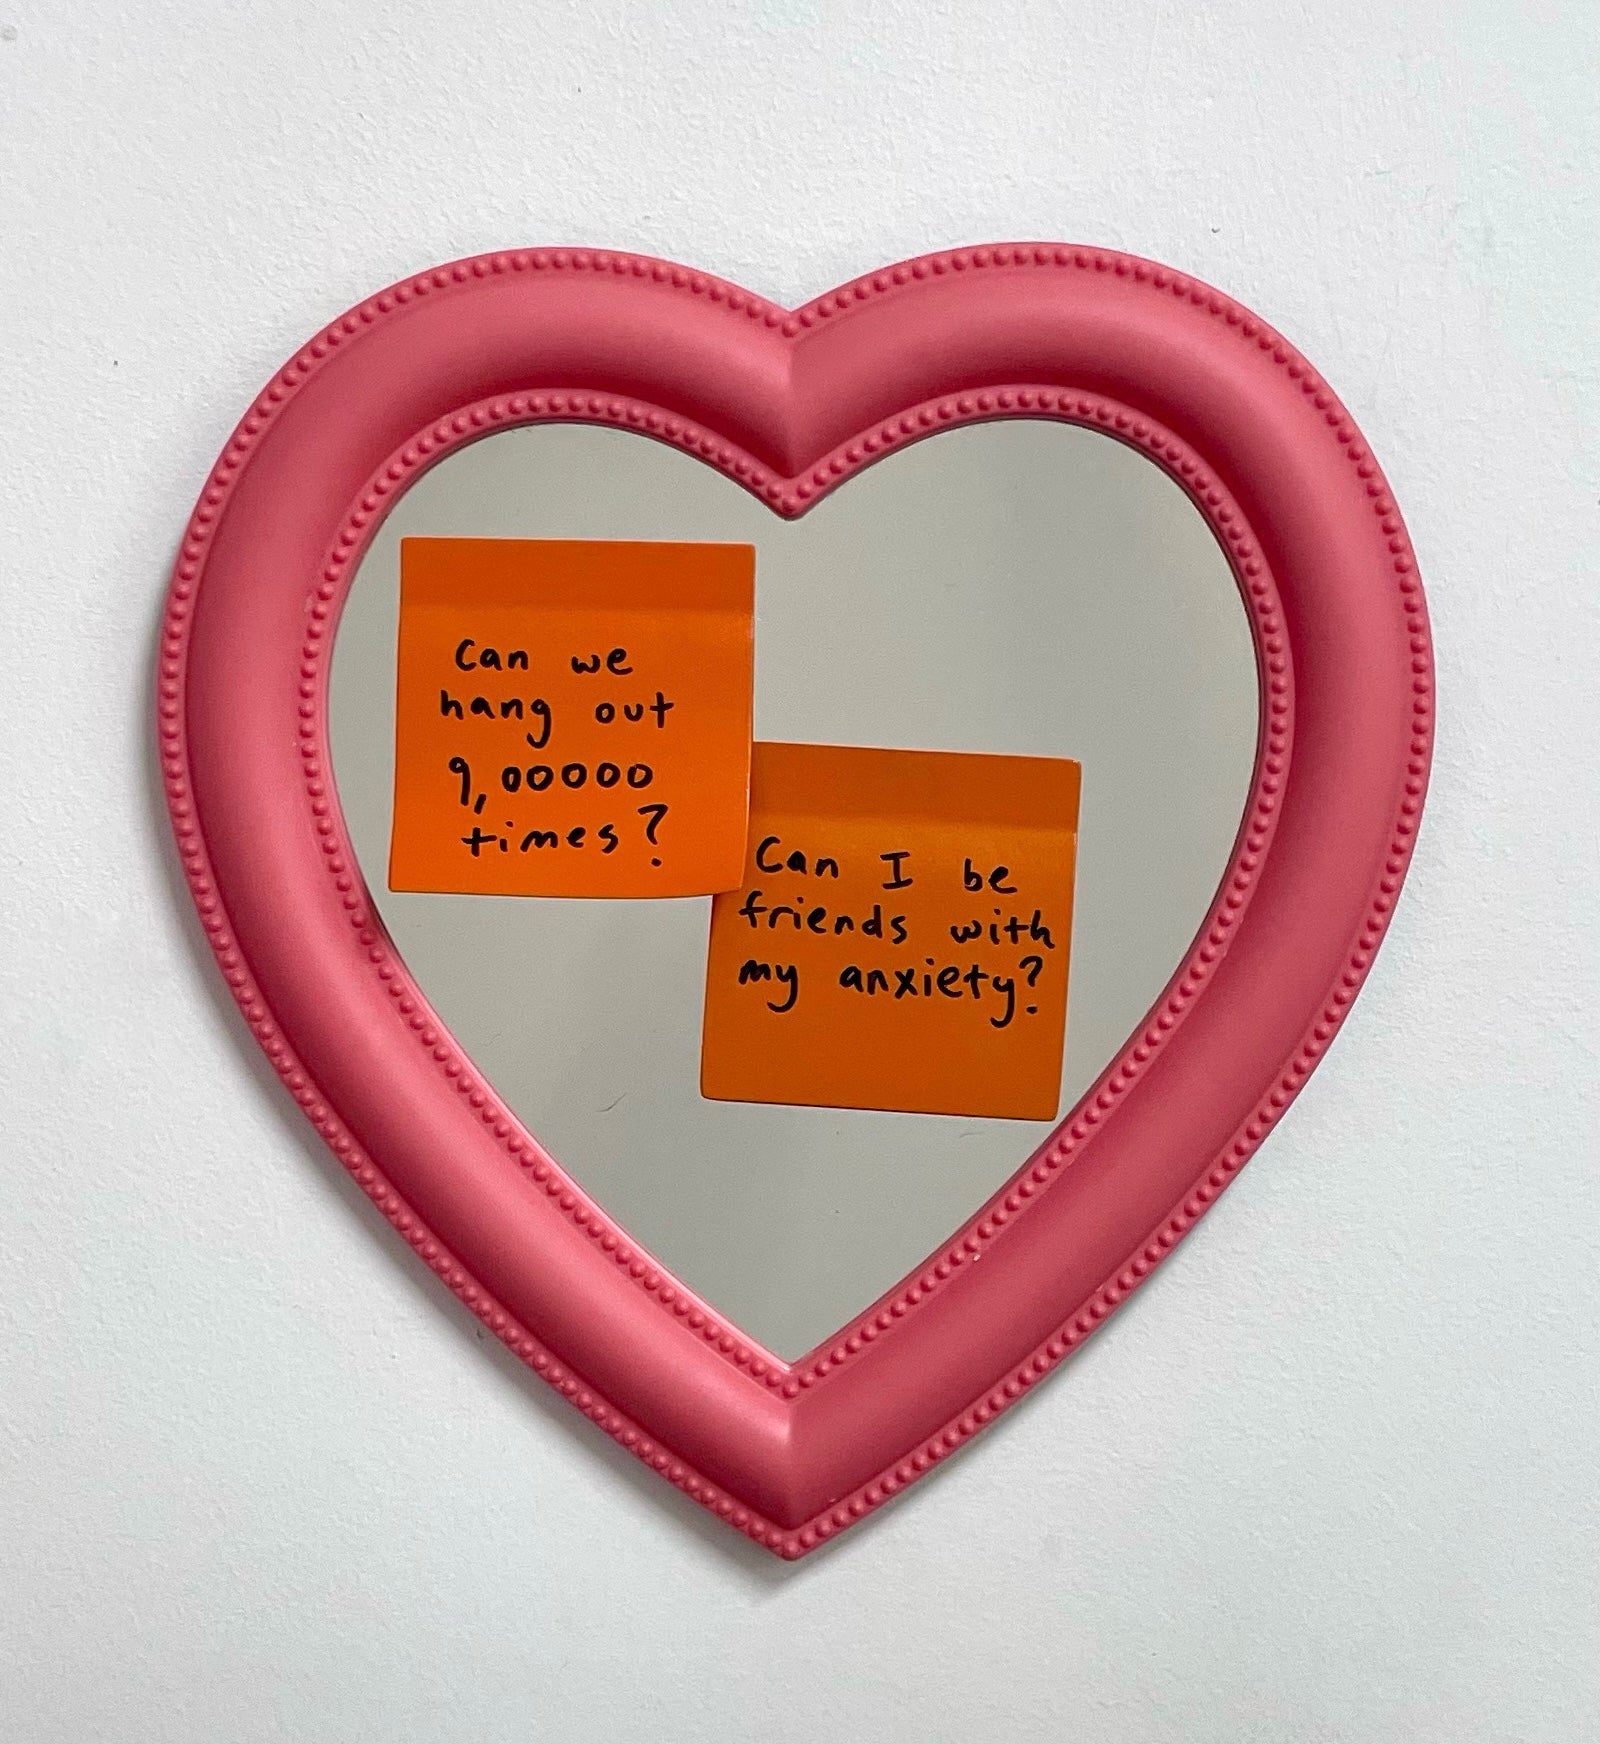 Can we
hang out
9,00000
times?
Can I be
friends with
my anxiety?